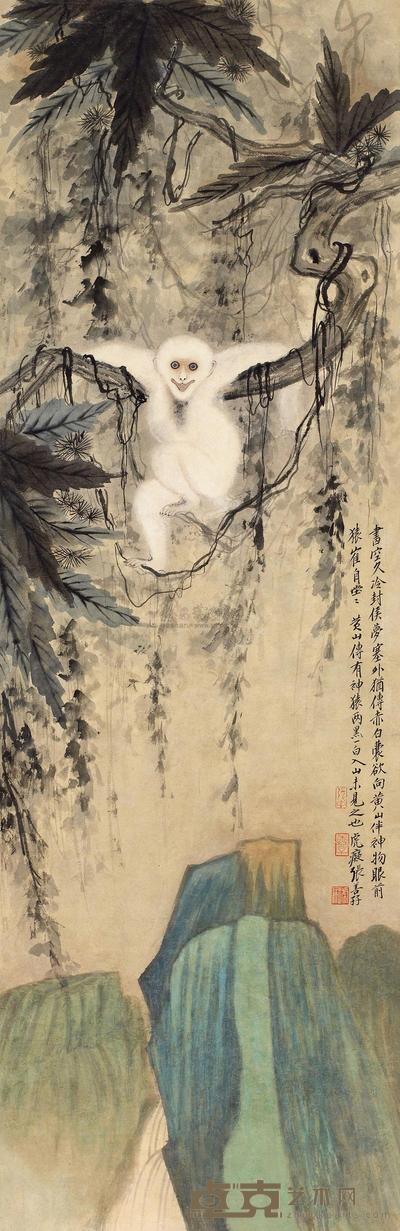 書空久冷封侯夢塞外猶傳赤白囊欲向黄山伴神物眼前
猿崔自
黄山傳有神猿两黑一白入山未見之也 虎癡張善孖
卓克艺术网